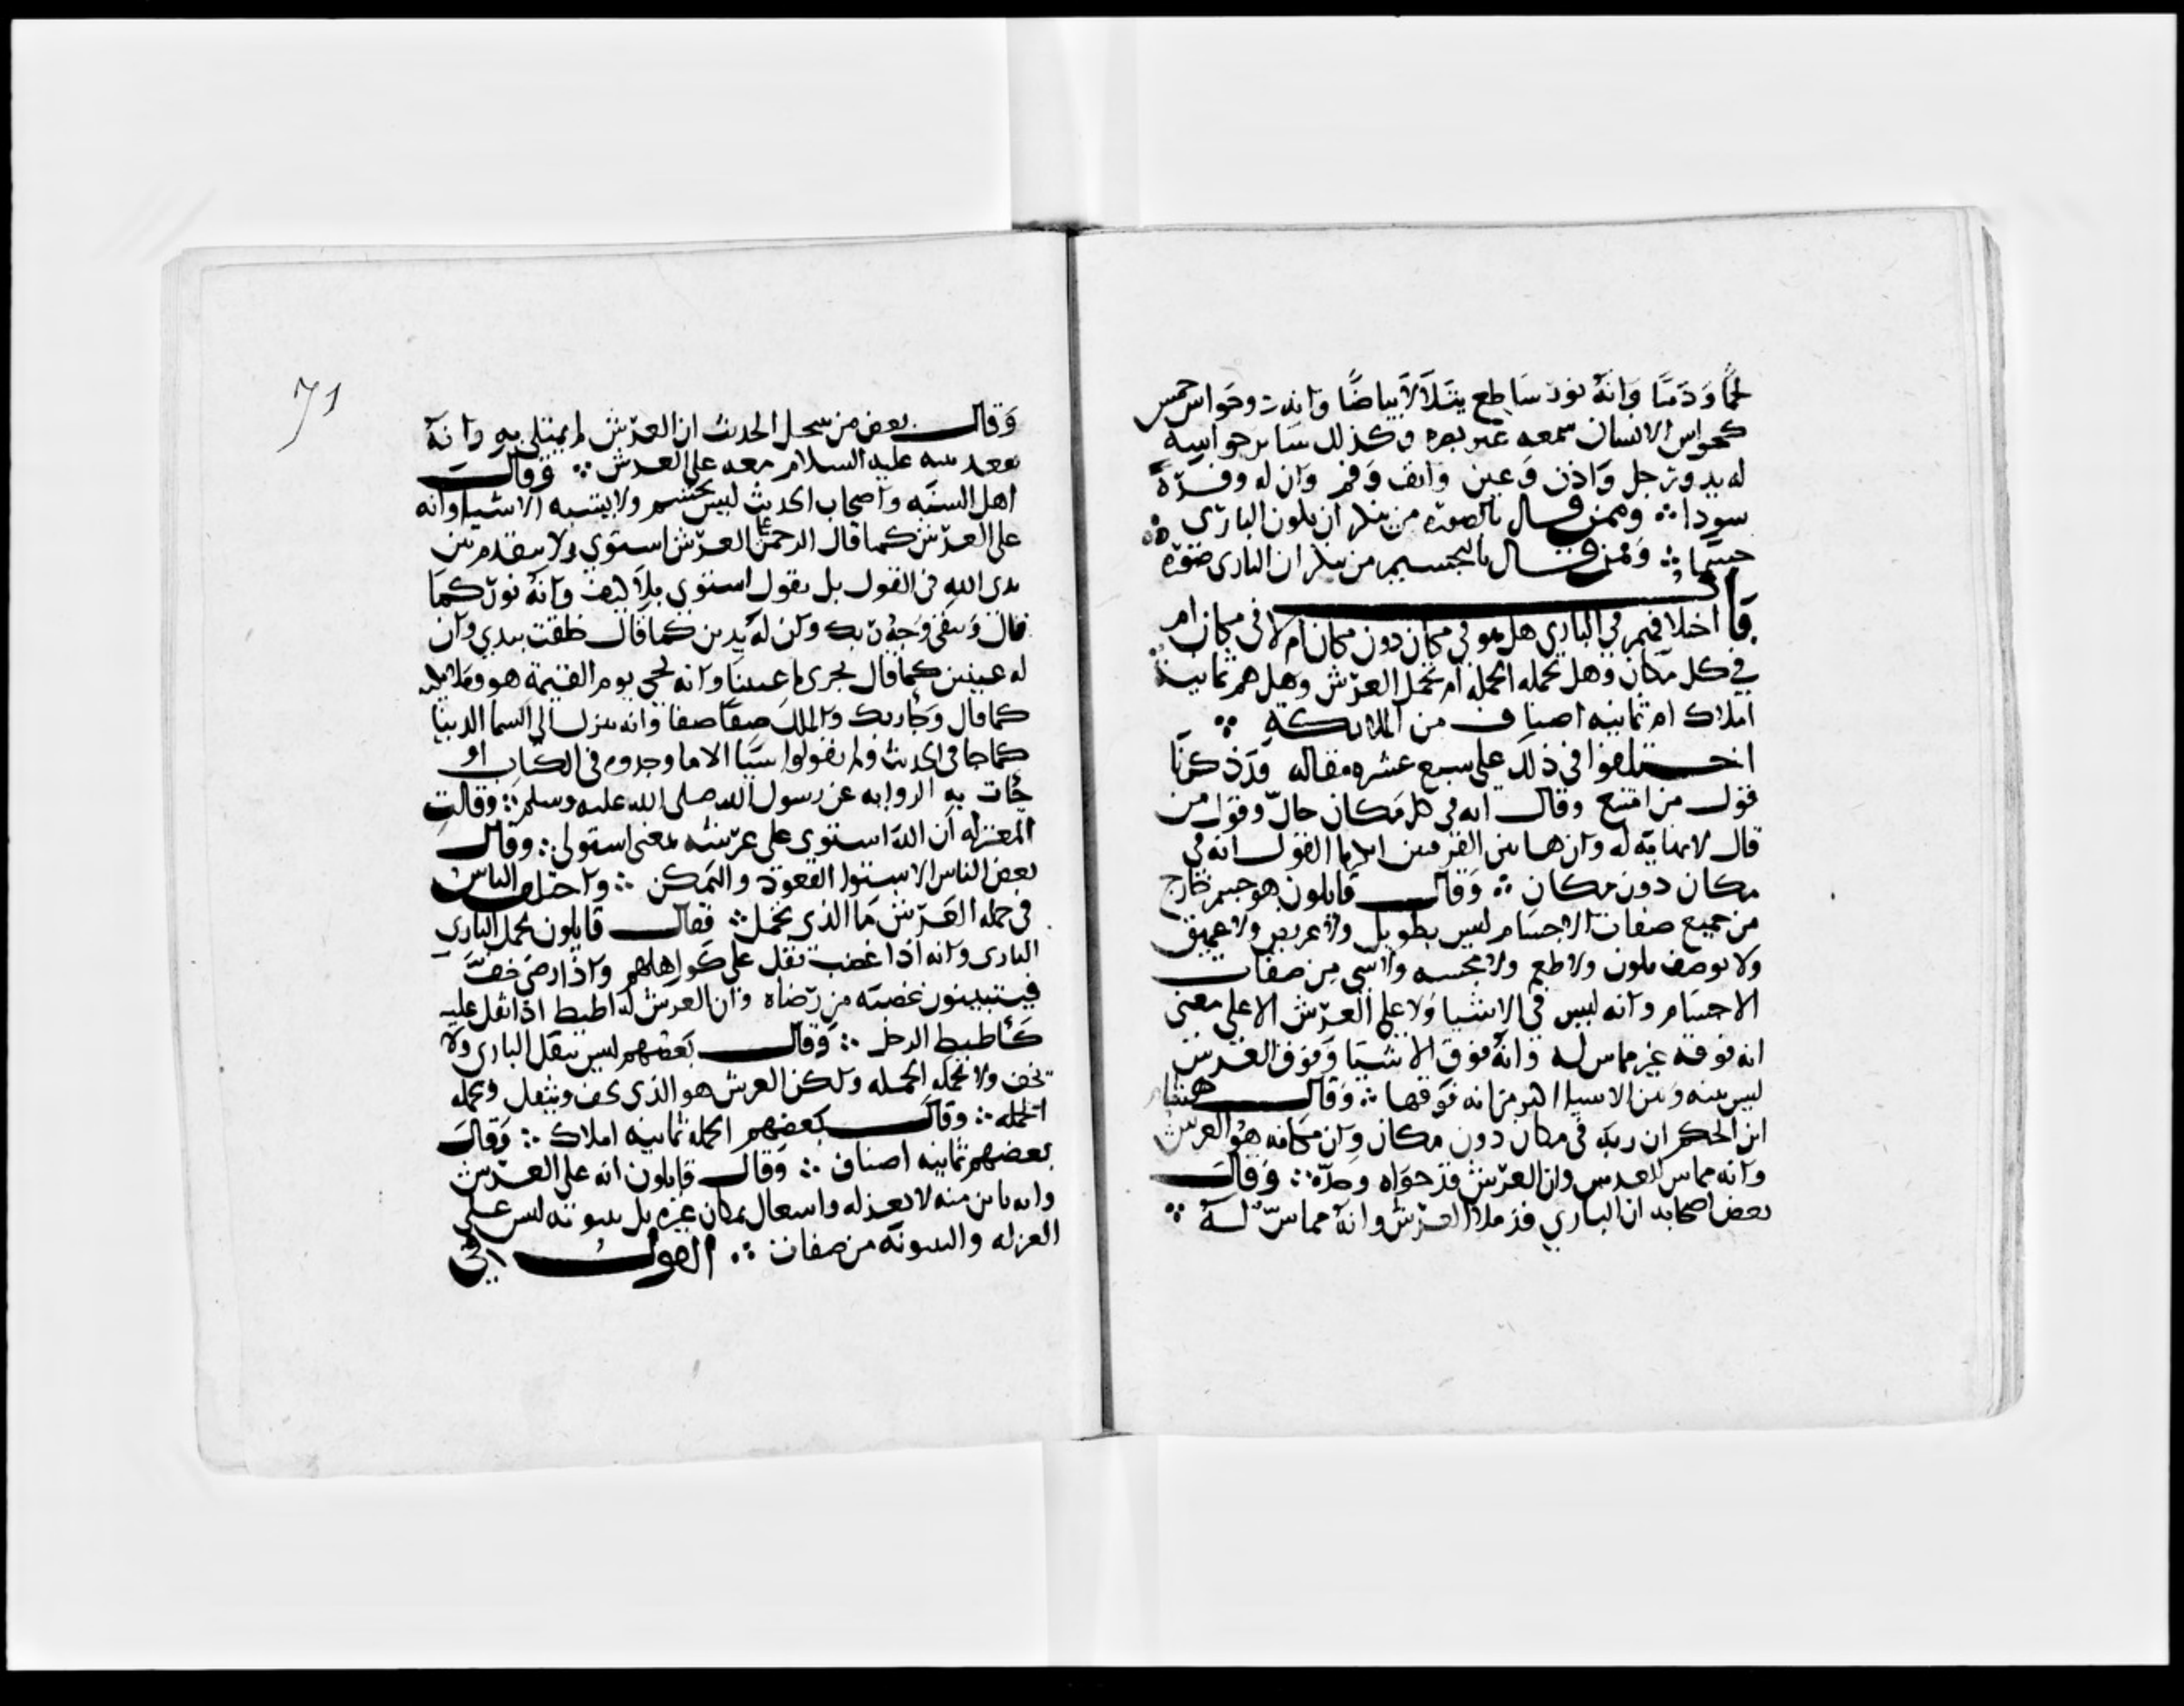 لحمًا ودمًا وانه نور ساطع يتلالا بياضًا وانه ذو حواس خمس
كحواس الانسان سمعه غير بصره وكذلك ساير حواسه
له يد ورجل واذن وعين وانف وفم وان له وفرة
سودا ∴ وممن قال بالصورة من ينكر ان يكون الباري
جسمًا ∴ وممن قال بالتجسيم من ينكر ان الباري صورة
قال
اختلافهم في الباري هل هو في مكان دون مكان ام لا في مكان ام
في كل مكان وهل تحمله الحملة ام تحمل العرش وهل هم ثمانية
املاك ام ثمانيه اصناف من الملايكة ∴
اختلفوا في ذلك على سبع عشره مقاله قد ذكرنا
قول من امتنع وقال انه في كل مكان حالّ وقول من
قال لا نهاية له وان هاتين الفرقتين انكرتا القول انه في
مكان دون مكان ∴ وقال قايلون هو جسم خارج
من جميع صفات الاجسام ليس بطويل ولا عريض ولا عميق
ولا يوصف بلون ولا طعم ولا مجسه ولا شي من صفات
الاجسام وانه ليس في الاشيا ولا على العرش الا على معنى
انه فوقه غير مماس له وانه فوق الاشيا وفوق العرش
ليس بينه وبين الاشيا اكثر من انه فوقها ∴ وقال هشام
ابن الحكم ان ربه في مكان دون مكان وان مكانه هو العرش
وانه مماس للعرش وان العرش قد حواه وحدّه ∴ وقال
بعض اصحابه ان الباري قد ملا العرش وانه مماسّ له ∴
71
وقال بعض من ينتحل الحديث ان العرش لم يمتلي به وانه
يقعد نبيه عليه السلام معه على العرش ∴ وقال
اهل السنه واصحاب الحديث ليس بجسم ولا يشبه الاشيا وانه
على العرش كما قال الرحمن على العرش استوي ولا نتقدم بين
يدي الله في القول بل نقول استوي بلا كيف وانه نور كما
قال ويبقى وجه ربك وان له يدين كما قال خلقت بيدي وان
له عينين كما قال تجري باعيننا وانه يجي يوم القيمة هو وملايكته
كما قال وجا ربك والملك صفًا صفًا وانه ينزل الى السما الدنيا
كما جا في الحديث ولم يقولوا شيًا الا ما وجدوه في الكتاب او
جات به الروايه عن رسول الله صلى الله عليه وسلم ∴ وقالت
المعتزله ان الله استوى على عرشه بمعنى استولى ∴ وقال
بعض الناس الاستوا القعود والتمكن ∴ واختلف الناس
في حمله العرش ما الذي تحمل ∴ فقال قايلون تحمل الباري
الباري وانه اذا غضب ثقل على كواهلهم واذا رضي خفّ
فيتبينون غضبه من رضاه وان العرش له اطيط اذا ثقل عليه
كأطيط الرحل ∴ وقال بعضهم ليس يثقل الباري ولا
يخف ولا تحمله الحمله ولكن العرش هو الذي يخف ويثقل وتحمله
الحمله ∴ وقال بعضهم الحمله ثمانيه املاك ∴ وقال
بعضهم ثمانيه اصناف ∴ وقال قايلون انه على العرش
وانه باين منه لا بعزله واشغال بمكان غيره بل بينونه ليس على
العزله والبينونة من صفات ∴ القول في